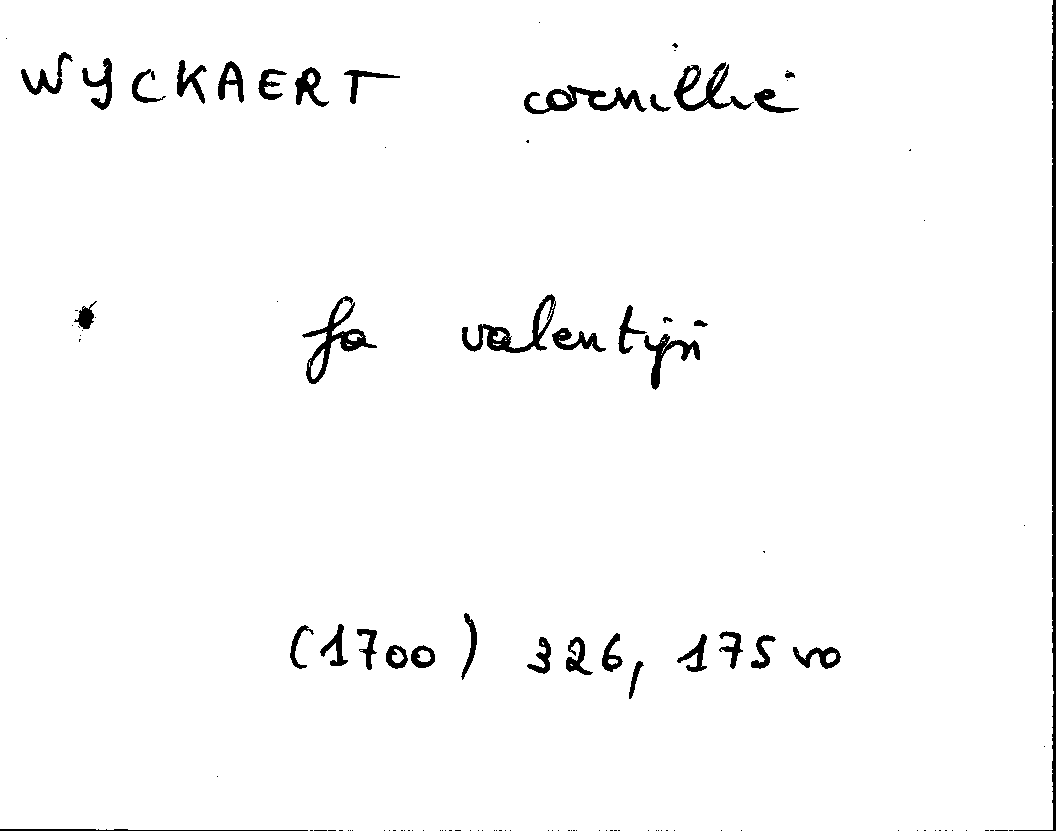 WYCKAERT cornillie
fa valentijn
(1700) 326, 175 vo